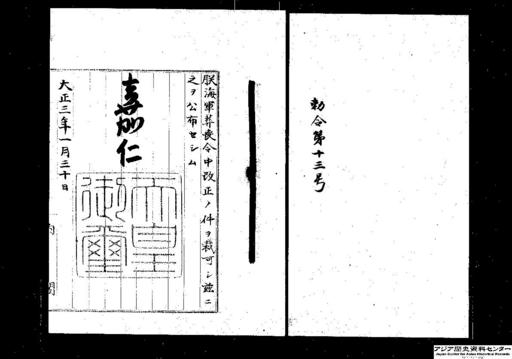 勅令第十三号
朕海軍葬喪令中改正ノ件ヲ裁可シ茲ニ
之ヲ公布セシム
嘉仁
天皇
御璽
大正三年一月三十日
内閣
アジア歴史資料センター
Japan Center for Asian Historical Records